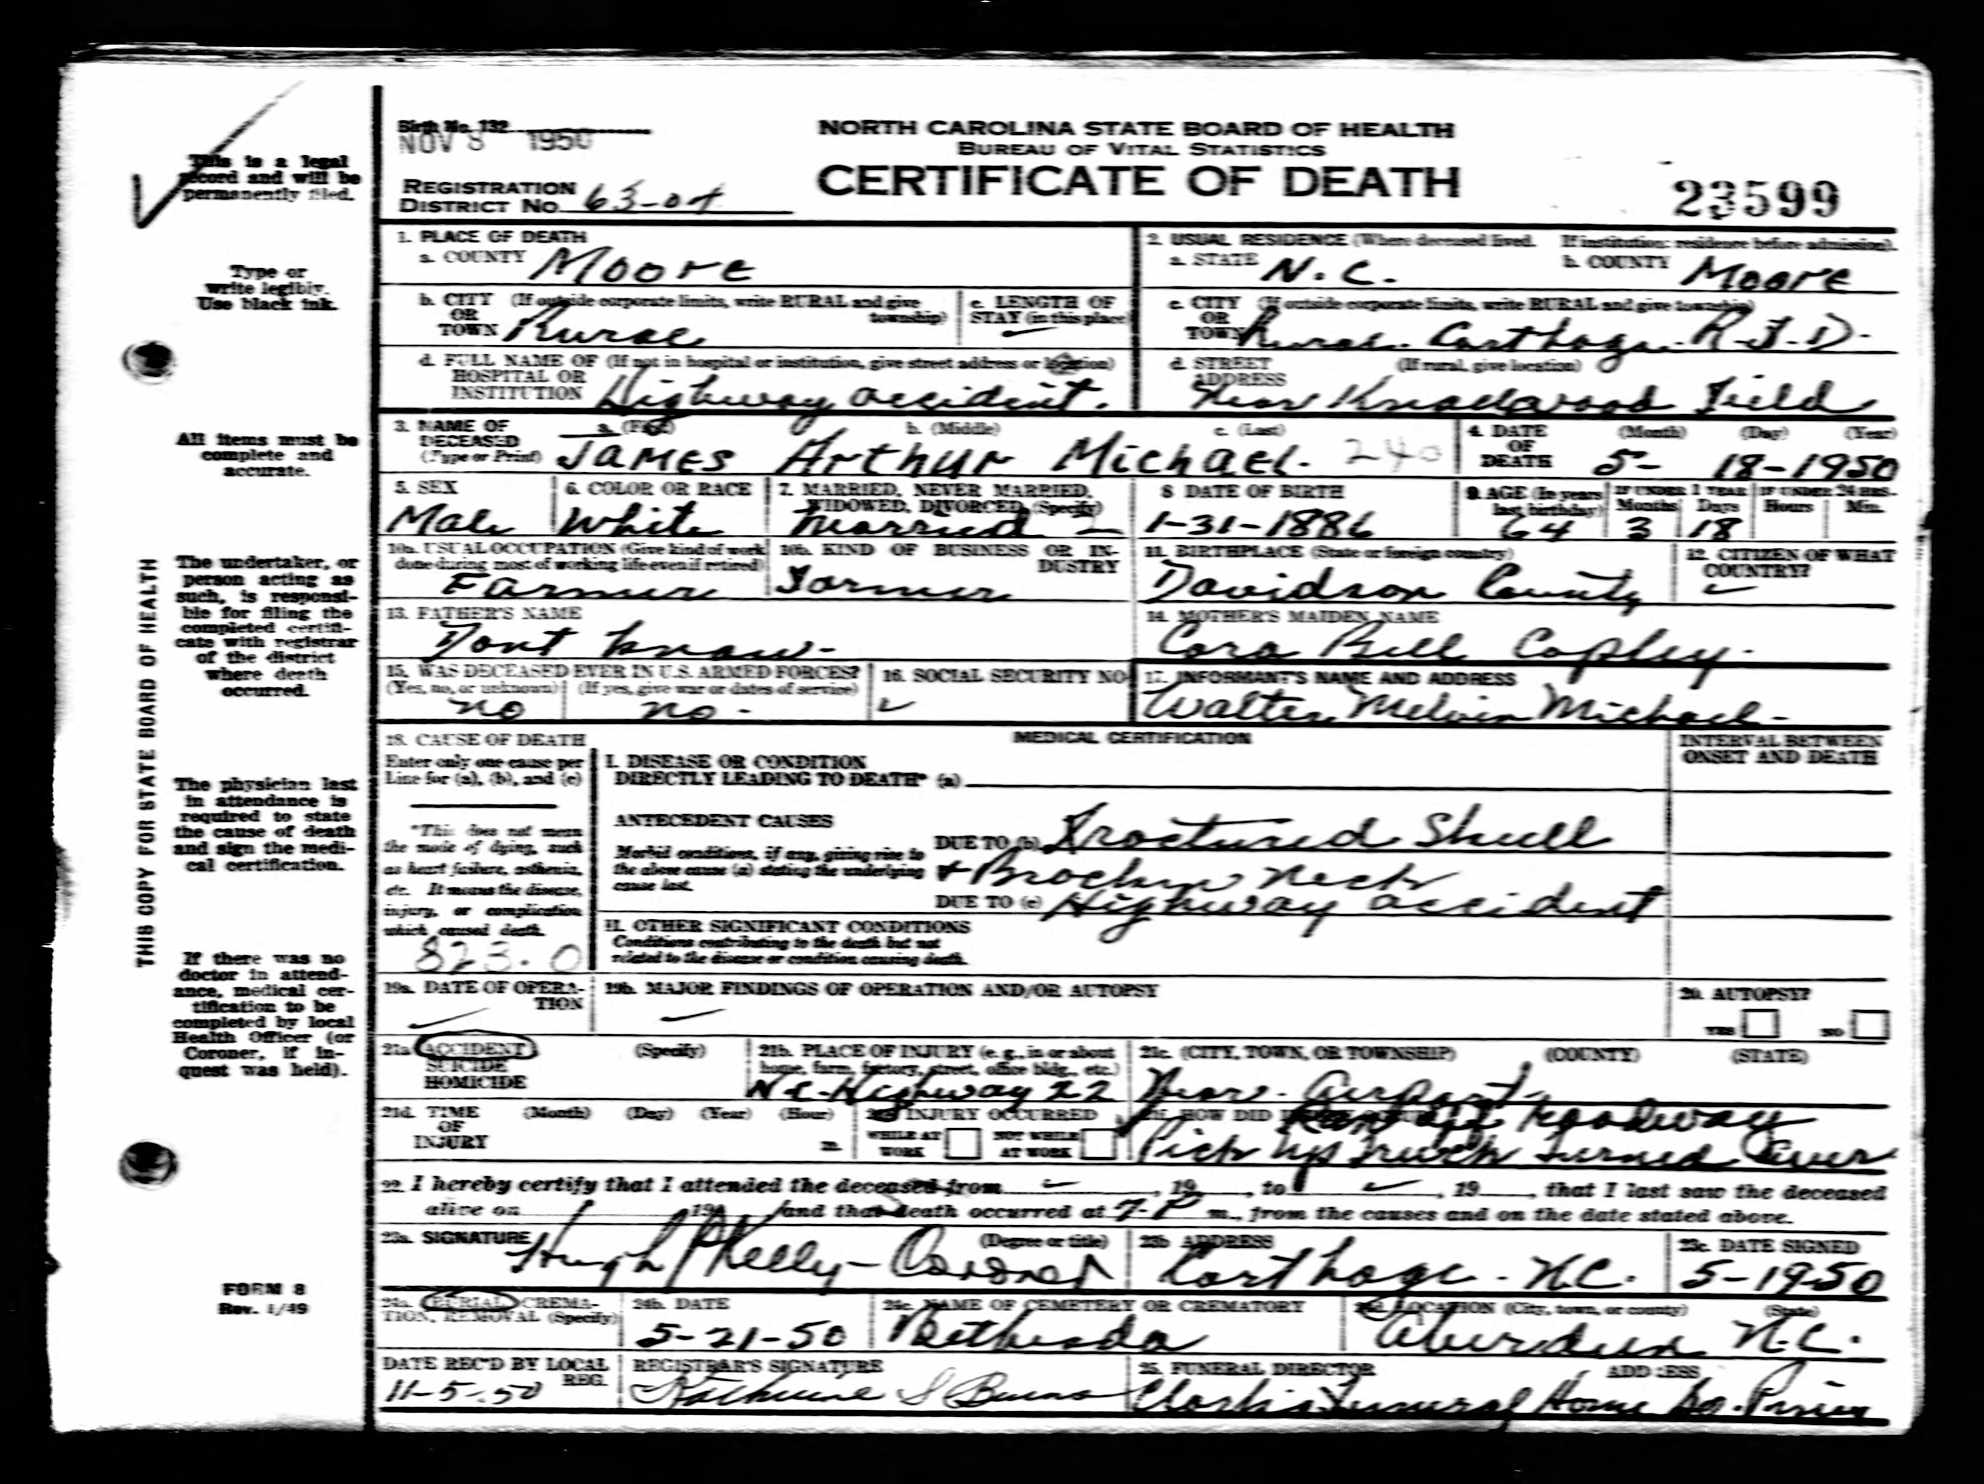 This is a legal
record and will be
permanently filed.
Type or
write legibly.
Use black ink.
All items must be
complete and
accurate.
The undertaker, or
person acting as
such, is responsi-
ble for filing the
completed certifi-
cate with registrar
of the district
where death
occurred.
The physician last
in attendance is
required to state
the cause of death
and sign the medi-
cal certification.
If there was no
doctor in attend-
ance, medical cer-
tification to be
completed by local
Health Officer (or
Coroner, if in-
quest was held).
FORM 8
Rev. 1/49
THIS COPY FOR STATE BOARD OF HEALTH
Birth No. 132
NOV 8 1950
REGISTRATION
DISTRICT NO. 63-04
NORTH CAROLINA STATE BOARD OF HEALTH
BUREAU OF VITAL STATISTICS
CERTIFICATE OF DEATH
23599
1. PLACE OF DEATH
a. COUNTY Moore
2. USUAL RESIDENCE (Where deceased lived. If institution: residence before admission).
a. STATE N.C. b. COUNTY Moore
b. CITY (If outside corporate limits, write RURAL and give township)
OR
TOWN Rural
c. LENGTH OF
STAY (in this place)
c. CITY (If outside corporate limits, write RURAL and give township)
OR
TOWN Rural Carthage R.F.D.
d. FULL NAME OF (If not in hospital or institution, give street address or location)
HOSPITAL OR
INSTITUTION Highway accident.
d. STREET (If rural, give location)
ADDRESS Near Knollwood Field
3. NAME OF
DECEASED
(Type or Print)
a. (First) b. (Middle) c. (Last)
James Arthur Michael. 240
4. DATE (Month) (Day) (Year)
OF
DEATH 5- 18-1950
5. SEX
Male
6. COLOR OR RACE
White
7. MARRIED, NEVER MARRIED,
WIDOWED, DIVORCED (Specify)
Married
8 DATE OF BIRTH
1-31-1886
9. AGE (In years
last birthday)
64
IF UNDER 1 YEAR
Months Days
3 18
IF UNDER 24 HRS.
Hours Min.
10a. USUAL OCCUPATION (Give kind of work
done during most of working life even if retired)
Farmer
10b. KIND OF BUSINESS OR IN-
DUSTRY
Farmer
11. BIRTHPLACE (State or foreign country)
Davidson County
12. CITIZEN OF WHAT
COUNTRY?
13. FATHER'S NAME
Dont know-
14. MOTHER'S MAIDEN NAME
Cora Bell Copley.
15. WAS DECEASED EVER IN U.S. ARMED FORCES?
(Yes, no, or unknown) (If yes, give war or dates of service)
no no-
16. SOCIAL SECURITY NO
17. INFORMANT'S NAME AND ADDRESS
Walter Melvin Michael-
18. CAUSE OF DEATH
Enter only one cause per
Line for (a), (b), and (c)
*This does not mean
the mode of dying, such
as heart failure, asthenia,
etc. It means the disease,
injury, or complication
which caused death.
823.0
MEDICAL CERTIFICATION
I. DISEASE OR CONDITION
DIRECTLY LEADING TO DEATH* (a)
ANTECEDENT CAUSES
Morbid conditions, if any, giving rise to
the above cause (a) stating the underlying
cause last.
DUE TO (b) Fractured Skull
+ Brocken Neck
DUE TO (c) Highway accident
II. OTHER SIGNIFICANT CONDITIONS
Conditions contributing to the death but not
related to the disease or condition causing death.
INTERVAL BETWEEN
ONSET AND DEATH
19a. DATE OF OPERA-
TION
19b. MAJOR FINDINGS OF OPERATION AND/OR AUTOPSY
20. AUTOPSY?
YES NO
21a ACCIDENT (Specify)
SUICIDE
HOMICIDE
21b. PLACE OF INJURY (e. g., in or about
home, farm, factory, street, office bldg., etc.)
N-C-Highway 22
21c. (CITY, TOWN, OR TOWNSHIP) (COUNTY) (STATE)
Near. Airport
21d. TIME (Month) (Day) (Year) (Hour)
OF
INJURY m.
INJURY OCCURRED
WHILE AT
WORK
NOT WHILE
AT WORK
HOW DID
Ran off Roadway
Pick Up Truck Turned Over
22. I hereby certify that I attended the deceased from , 19 , to , 19 , that I last saw the deceased
alive on 19 and that death occurred at 7-P m., from the causes and on the date stated above.
23a. SIGNATURE (Degree or title)
Hugh P Kelly- Coroner
23b ADDRESS
Carthage. N.C.
23c. DATE SIGNED
5-19-50
24a. BURIAL, CREMA-
TION, REMOVAL (Specify)
24b. DATE
5-21-50
24c. NAME OF CEMETERY OR CREMATORY
Bethesda
24d. LOCATION (City, town, or county) (State)
Aberdeen N.C.
DATE REC'D BY LOCAL
REG.
11-5-50
REGISTRAR'S SIGNATURE
Katherine S Burns
25. FUNERAL DIRECTOR ADDRESS
Clark's Funeral Home So. Pines